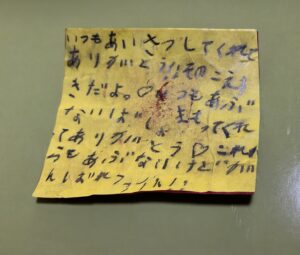 いつもあいさつしてくれて
ありがとう!そのこえす
きだよ。♡いつもあぶ
ないばしょ まもってくれ
てありがとう♡これか
らもあぶないけどが

んばれファイト!